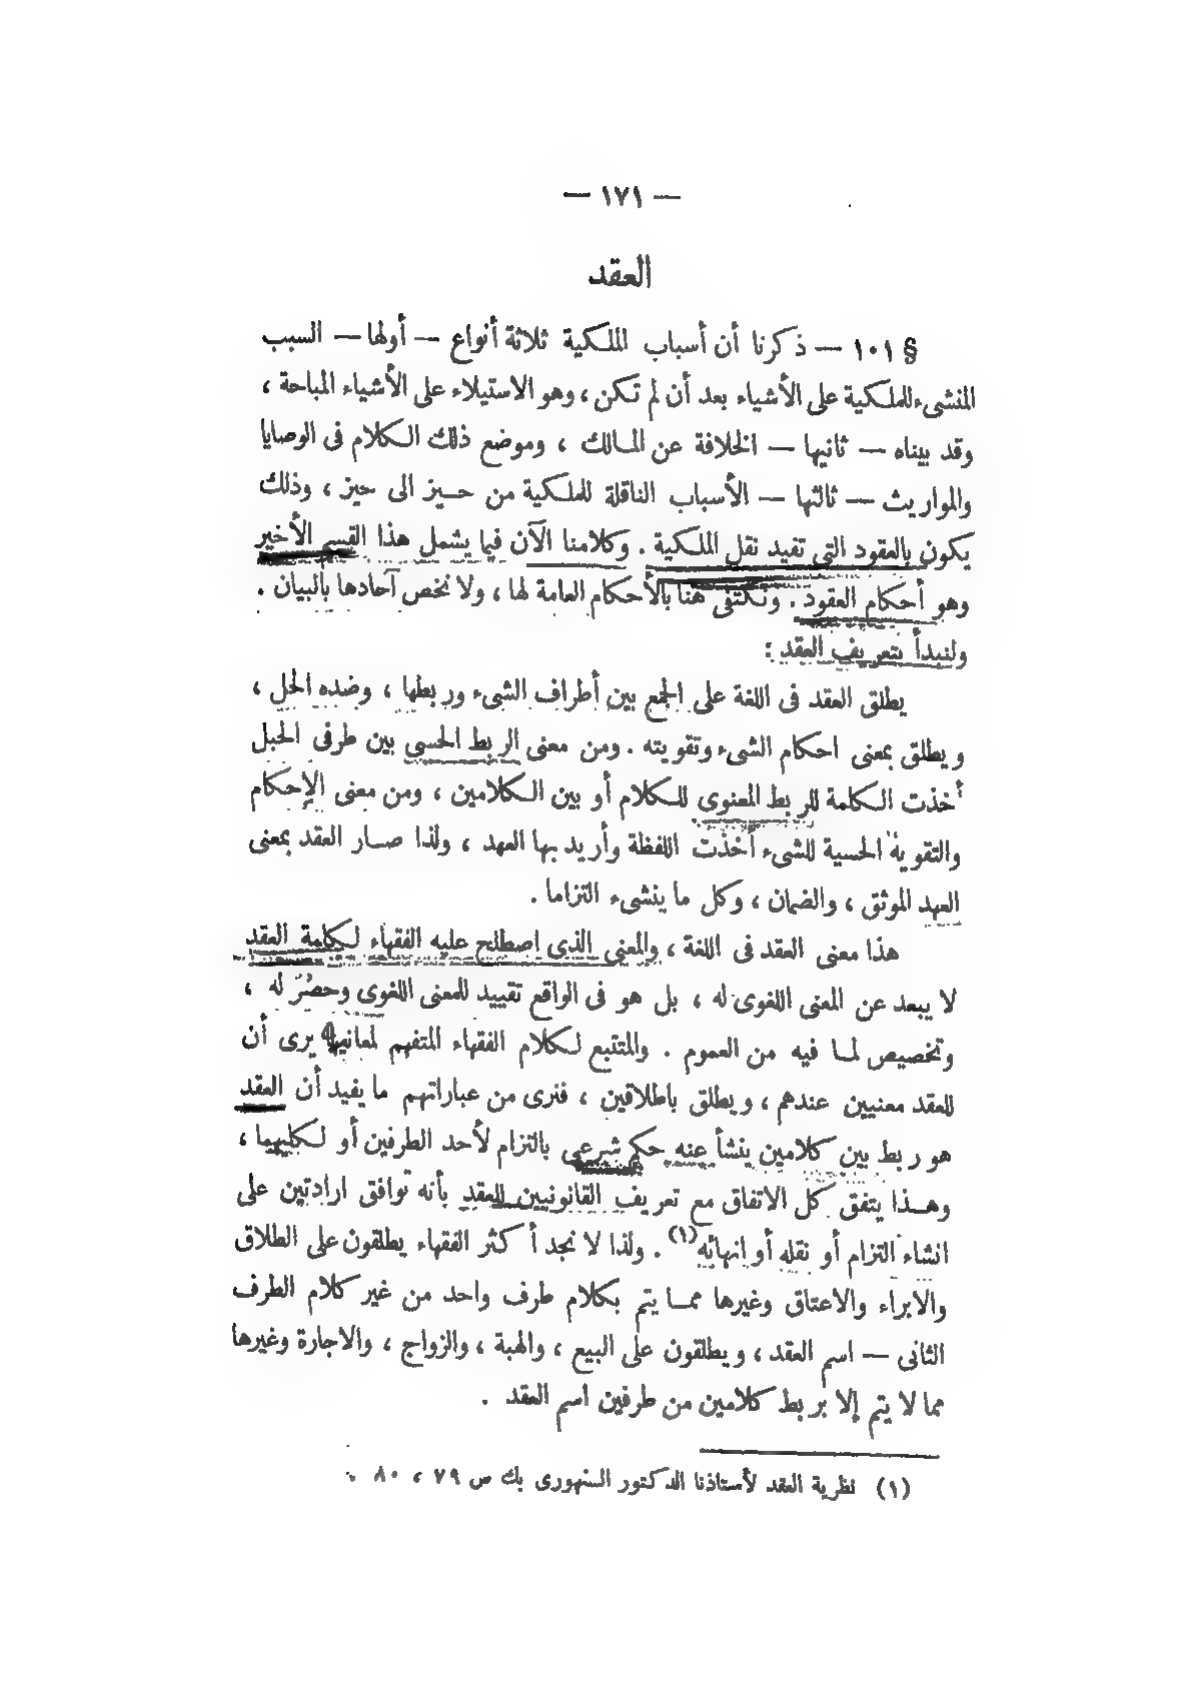 — ١٧١ —
العقد
§ ١٠١ — ذكرنا أن أسباب الملكية ثلاثة أنواع — أولها — السبب
المنشىء للملكية على الأشياء بعد أن لم تكن ، وهو الاستيلاء على الأشياء المباحة ،
وقد بيناه — ثانيها — الخلافة عن المالك ، وموضع ذلك الكلام فى الوصايا
والمواريث — ثالثها — الأسباب الناقلة للملكية من حيز الى حيز ، وذلك
يكون بالعقود التى تفيد نقل الملكية . وكلامنا الآن فيما يشمل هذا القسم الأخير
وهو أحكام العقود . ونكتفى هنا بالأحكام العامة لها ، ولا نخص آحادها بالبيان .
ولنبدأ بتعريف العقد :
يطلق العقد فى اللغة على الجمع بين أطراف الشىء وربطها ، وضده الحل ،
ويطلق بمعنى احكام الشىء وتقويته . ومن معنى الربط الحسى بين طرفى الحبل
أخذت الكلمة للربط المعنوى للكلام أو بين الكلامين ، ومن معنى الإحكام
والتقوية الحسية للشىء أخذت اللفظة وأريد بها العهد ، ولذا صار العقد بمعنى
العهد الموثق ، والضمان ، وكل ما ينشىء التزاما .
هذا معنى العقد فى اللغة ، والمعنى الذى اصطلح عليه الفقهاء لكلمة العقد
لا يبعد عن المعنى اللغوى له ، بل هو فى الواقع تقييد للمعنى اللغوى وحصْر له ،
وتخصيص لما فيه من العموم . والمتتبع لكلام الفقهاء المتفهم لمعانيها يرى أن
للعقد معنيين عندهم ، ويطلق باطلاقين ، فنرى من عباراتهم ما يفيد أن العقد
هو ربط بين كلامين ينشأ عنه حكم شرعى بالتزام لأحد الطرفين أو لكليهما ،
وهذا يتفق كل الاتفاق مع تعريف القانونيين للعقد بأنه توافق ارادتين على
انشاء التزام أو نقله أو انهائه(١) . ولذا لا نجد أكثر الفقهاء يطلقون على الطلاق
والابراء والاعتاق وغيرها مما يتم بكلام طرف واحد من غير كلام الطرف
الثانى — اسم العقد ، ويطلقون على البيع ، والهبة ، والزواج ، والاجارة وغيرها
مما لا يتم إلا بربط كلامين من طرفين اسم العقد .
(١) نظرية العقد لأستاذنا الدكتور السنهورى بك ص ٧٩ ، ٨٠ .